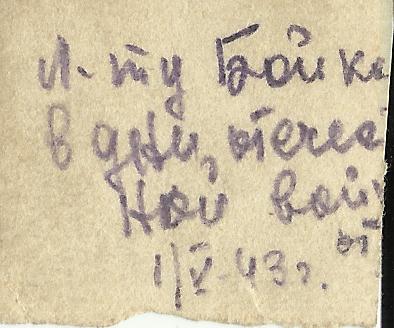 Л-ту Бойк
в дни, отечес
ной вой
от
1/V-43 г.